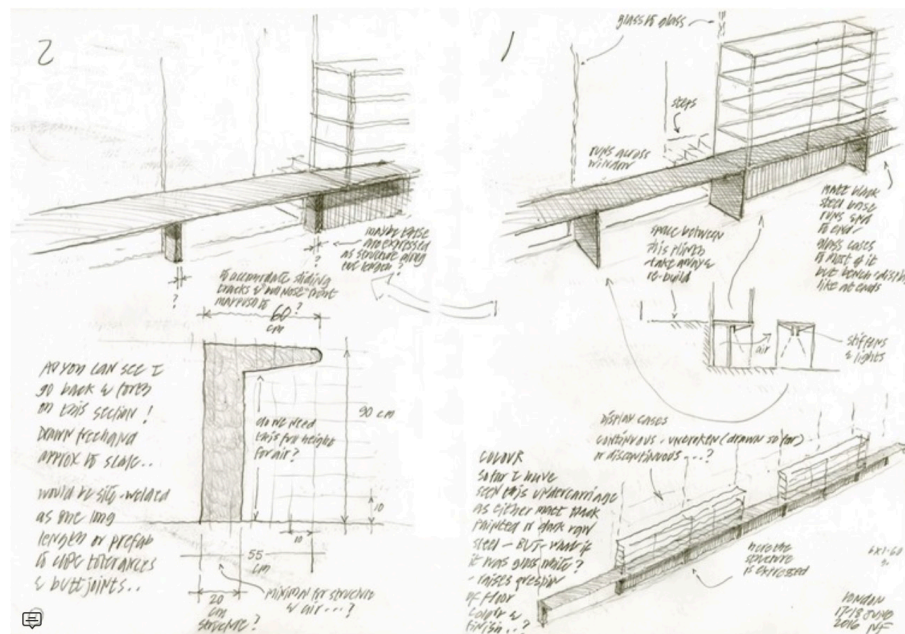 2
maybe these
are expressed
as structure along
the length?
?
?
to accommodate sliding
tracks & bull nose front
?
60
cm
As you can see I
go back & forth
on this section!
Drawn freehand
approx to scale..
would be site-welded
as one long
length or prefab
to close tolerances
& butt joints..
do we need
this for height
for air?
90 cm
10
10
55
cm
20
cm
structure?
minimum for structure
& air...?
1
glass to glass
steps
runs across
window
matt black
steel base
runs end
to end -
glass cases
to most of it
but bench-display
like at ends
space between
this plinth
take away &
re-build
air
stiffeners
& lights
display cases
continuous - unbroken (drawn so far)
or discontinuous - ..?
COLOUR
So far I have
seen this undercarriage
as either matt black
painted or dark raw
steel - BUT - what if
it was gloss white?
- raises question
of floor
colour &
finish..?
here the
structure
is expressed
London
17-18 June
2016 NF